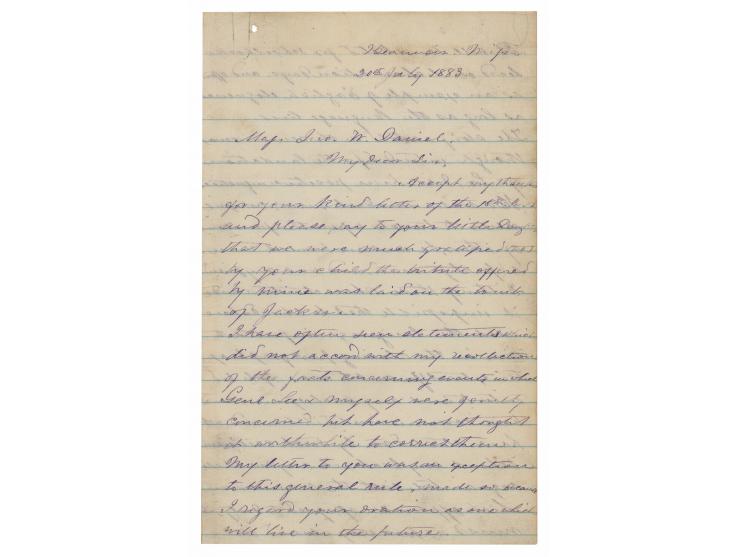 Beauvoir Missi
20th July 1883
Maj. Jno. W. Daniel,
My dear Sir,
Accept my thanks
for your kind letter of the 18th Inst
and please say to your little Daughter
that we were much gratified that
by your child the tribute offered
by mine was laid on the tomb
of Jackson.
I have often seen statements which
did not accord with my recollection
of the facts concerning events in which
Genl Lee & myself were jointly
concerned but have not thought
it worth while to correct them.
My letter to you was an exception
to this general rule, made so because
I regard your oration as one which
will live in the future.